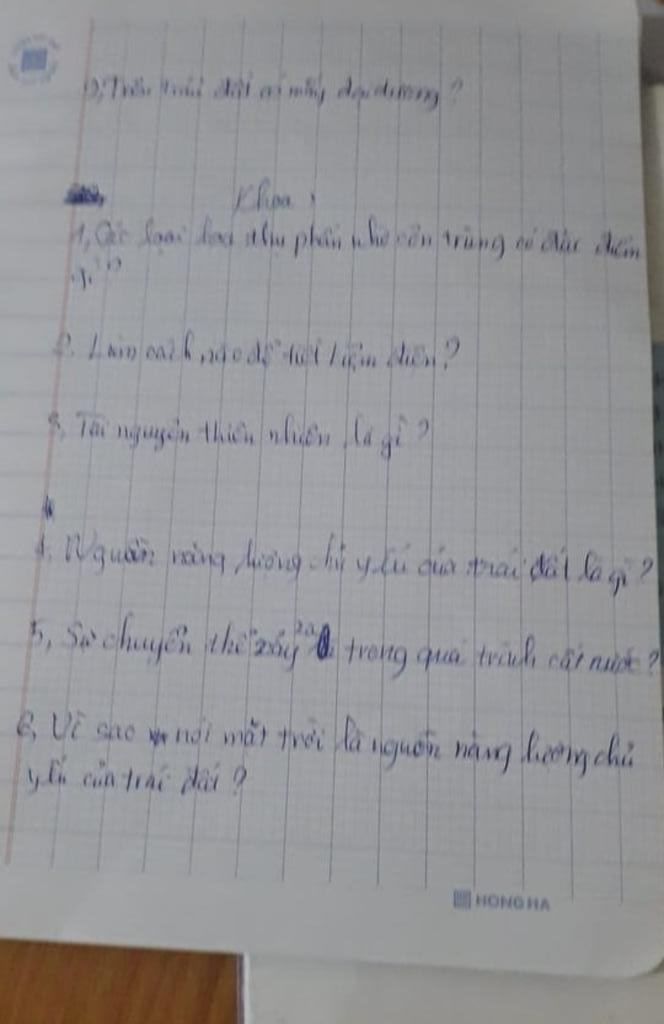 Trên trái đất có mấy đại dương?
Khoa
1, Các loại hoa thụ phấn nhờ côn trùng có đặc điểm
gì?
2. Làm cách nào để tiết kiệm điện?
3, Tài nguyên thiên nhiên là gì?
4. Nguồn năng lượng chủ yếu của trái đất là gì?
5, Sự chuyển thể xảy ra trong quá trình cất nước?
6, Vì sao nói mặt trời là nguồn năng lượng chủ
yếu của trái đất?
HONG HA